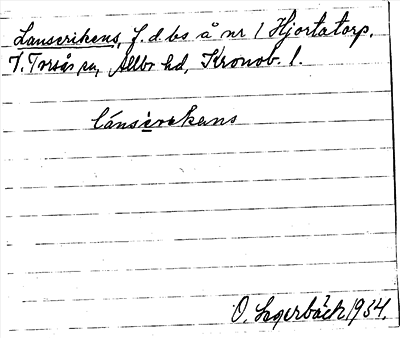 Lanserikens, f. d. bs å nr 1 Hjortatorp,
V. Torsås sn, Allbo hd, Kronob. l.
lánserekens
O. Lagerbäck 1934.